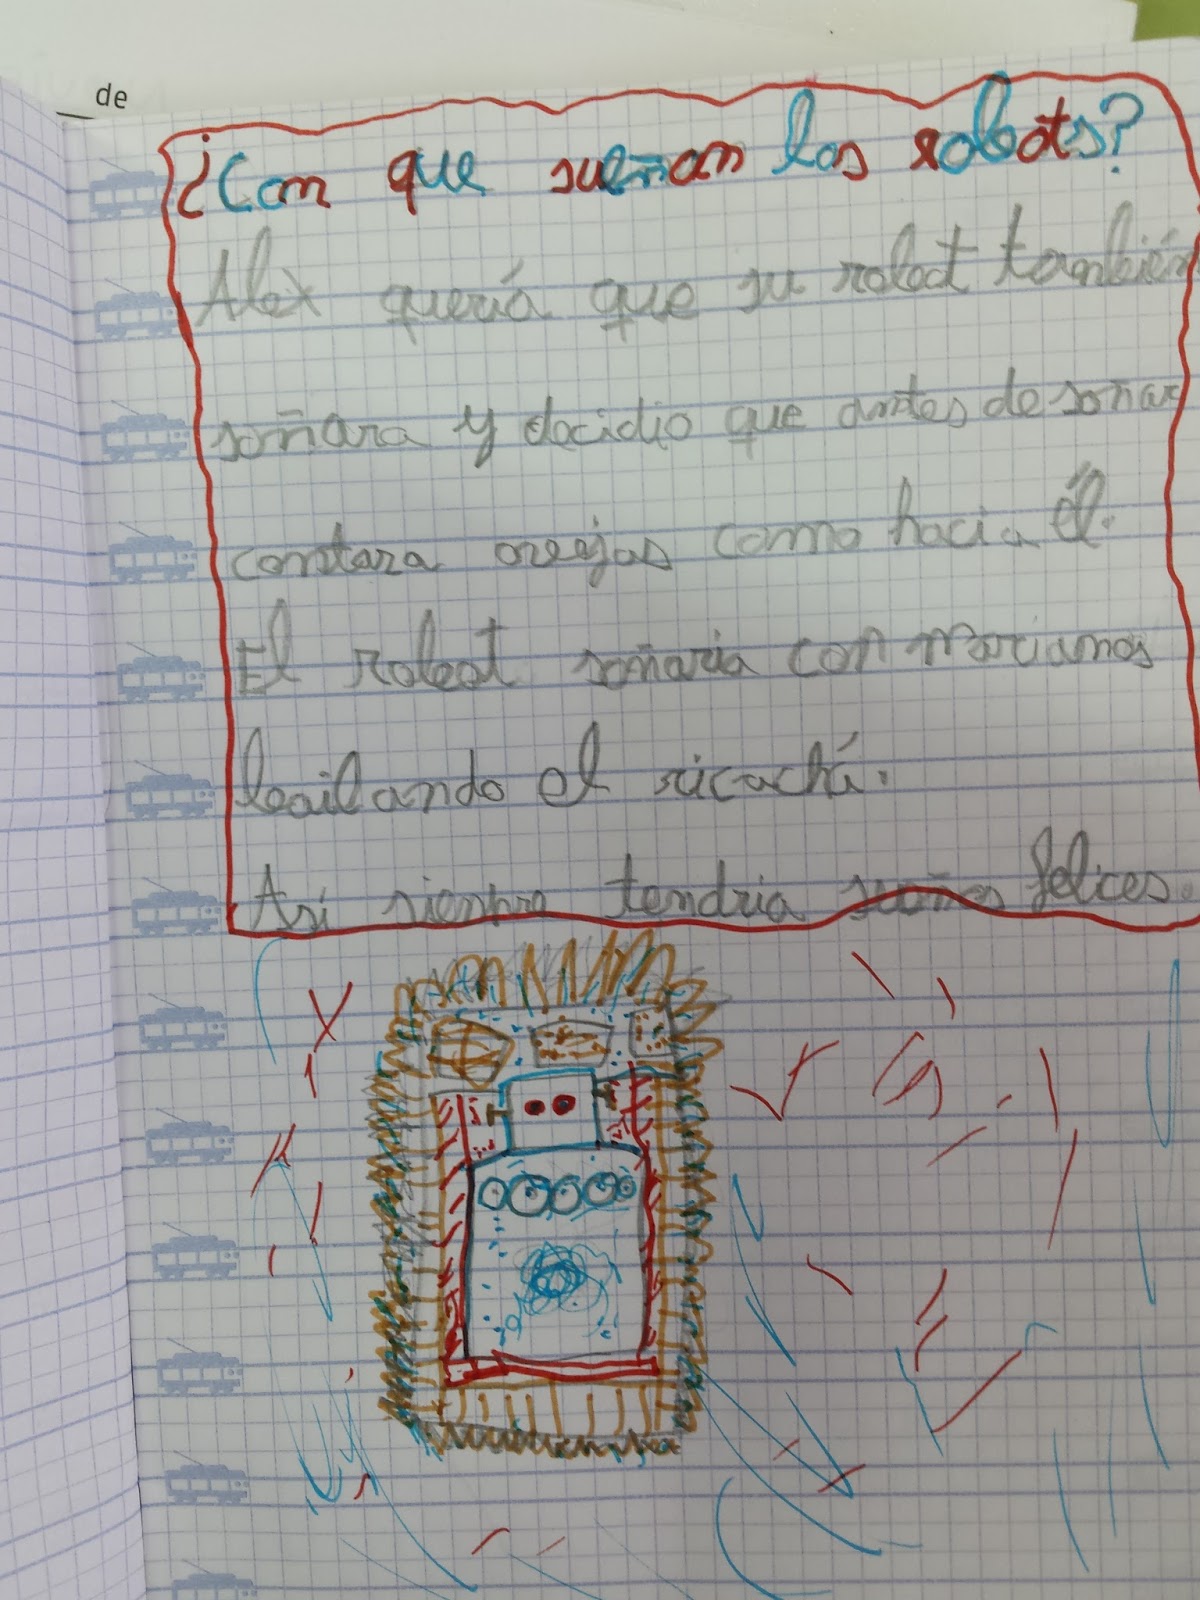 de
¿Con que sueñan los robots?
Alex queriá que su robot también
soñara y decidio que antes de soñar
contara ovejas como hacia él.
El robot soñaria con marcianos
bailando el ricachá.
Asi siempre tendria sueños felices.